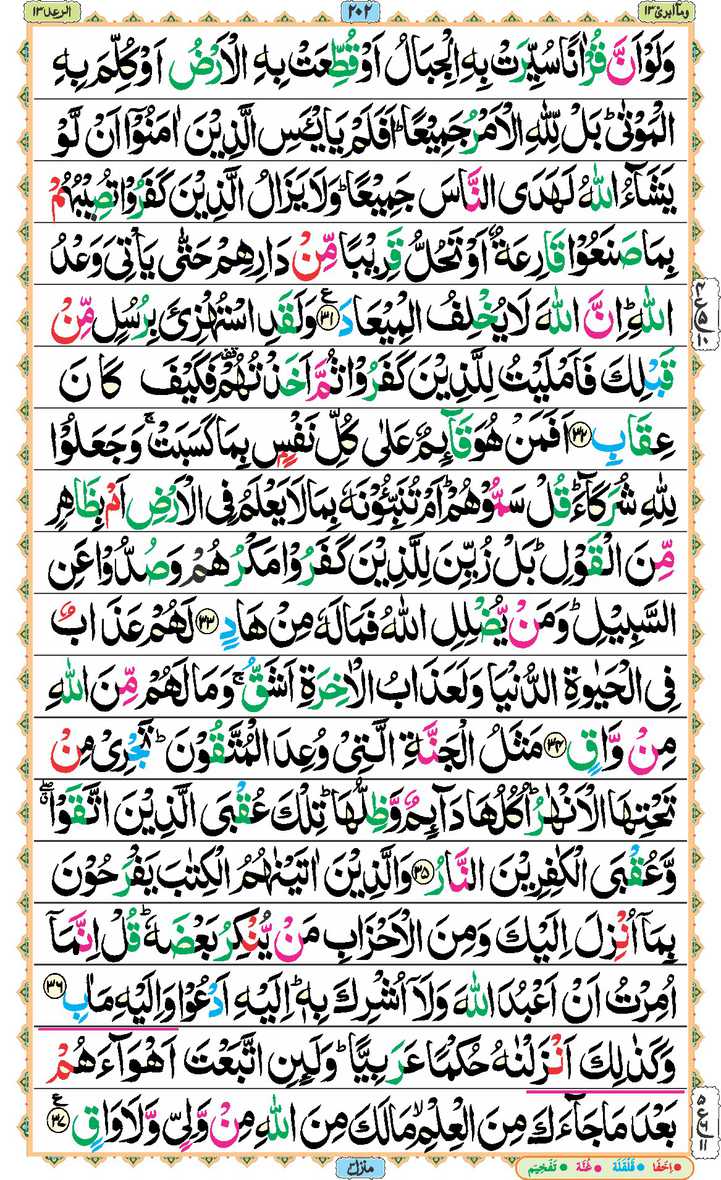 الرعد١٣ ٢٠٢ ومآابرئ١٣
وَلَوْ اَنَّ قُرْاٰنًا سُيِّرَتْ بِهِ الْجِبَالُ اَوْ قُطِّعَتْ بِهِ الْاَرْضُ اَوْ كُلِّمَ بِهِ
الْمَوْتٰى ؕ بَلْ لِّلّٰهِ الْاَمْرُ جَمِيْعًا ؕ اَفَلَمْ يَايْـَٔسِ الَّذِيْنَ اٰمَنُوْۤا اَنْ لَّوْ
يَشَآءُ اللّٰهُ لَهَدَى النَّاسَ جَمِيْعًا ؕ وَلَا يَزَالُ الَّذِيْنَ كَفَرُوْا تُصِيْبُهُمْ
بِمَا صَنَعُوْا قَارِعَةٌ اَوْ تَحُلُّ قَرِيْبًا مِّنْ دَارِهِمْ حَتّٰى يَاْتِيَ وَعْدُ
اللّٰهِ ؕ اِنَّ اللّٰهَ لَا يُخْلِفُ الْمِيْعَادَ ﴿٣١﴾ وَلَقَدِ اسْتُهْزِئَ بِرُسُلٍ مِّنْ
قَبْلِكَ فَاَمْلَيْتُ لِلَّذِيْنَ كَفَرُوْا ثُمَّ اَخَذْتُهُمْ ۫ فَكَيْفَ كَانَ
عِقَابِ ﴿٣٢﴾ اَفَمَنْ هُوَ قَآىِٕمٌ عَلٰى كُلِّ نَفْسٍۭ بِمَا كَسَبَتْ ۚ وَجَعَلُوْا
لِلّٰهِ شُرَكَآءَ ؕ قُلْ سَمُّوْهُمْ ؕ اَمْ تُنَبِّـُٔوْنَهٗ بِمَا لَا يَعْلَمُ فِي الْاَرْضِ اَمْ بِظَاهِرٍ
مِّنَ الْقَوْلِ ؕ بَلْ زُيِّنَ لِلَّذِيْنَ كَفَرُوْا مَكْرُهُمْ وَصُدُّوْا عَنِ
السَّبِيْلِ ؕ وَمَنْ يُّضْلِلِ اللّٰهُ فَمَا لَهٗ مِنْ هَادٍ ﴿٣٣﴾ لَهُمْ عَذَابٌ
فِي الْحَيٰوةِ الدُّنْيَا وَلَعَذَابُ الْاٰخِرَةِ اَشَقُّ ۚ وَمَا لَهُمْ مِّنَ اللّٰهِ
مِنْ وَّاقٍ ﴿٣٤﴾ مَثَلُ الْجَنَّةِ الَّتِيْ وُعِدَ الْمُتَّقُوْنَ ؕ تَجْرِيْ مِنْ
تَحْتِهَا الْاَنْهٰرُ ؕ اُكُلُهَا دَآىِٕمٌ وَّظِلُّهَا ؕ تِلْكَ عُقْبَى الَّذِيْنَ اتَّقَوْا ۖ
وَّعُقْبَى الْكٰفِرِيْنَ النَّارُ ﴿٣٥﴾ وَالَّذِيْنَ اٰتَيْنٰهُمُ الْكِتٰبَ يَفْرَحُوْنَ
بِمَاۤ اُنْزِلَ اِلَيْكَ وَمِنَ الْاَحْزَابِ مَنْ يُّنْكِرُ بَعْضَهٗ ؕ قُلْ اِنَّمَاۤ
اُمِرْتُ اَنْ اَعْبُدَ اللّٰهَ وَلَاۤ اُشْرِكَ بِهٖ ؕ اِلَيْهِ اَدْعُوْا وَاِلَيْهِ مَاٰبِ ﴿٣٦﴾
وَكَذٰلِكَ اَنْزَلْنٰهُ حُكْمًا عَرَبِيًّا ؕ وَلَىِٕنِ اتَّبَعْتَ اَهْوَآءَهُمْ
بَعْدَ مَا جَآءَكَ مِنَ الْعِلْمِ ۙ مَا لَكَ مِنَ اللّٰهِ مِنْ وَّلِيٍّ وَّلَا وَاقٍ ﴿٣٧﴾
منزل٣
اِخفَا قَلقَلَة غُنَّة تَفْخِيْم